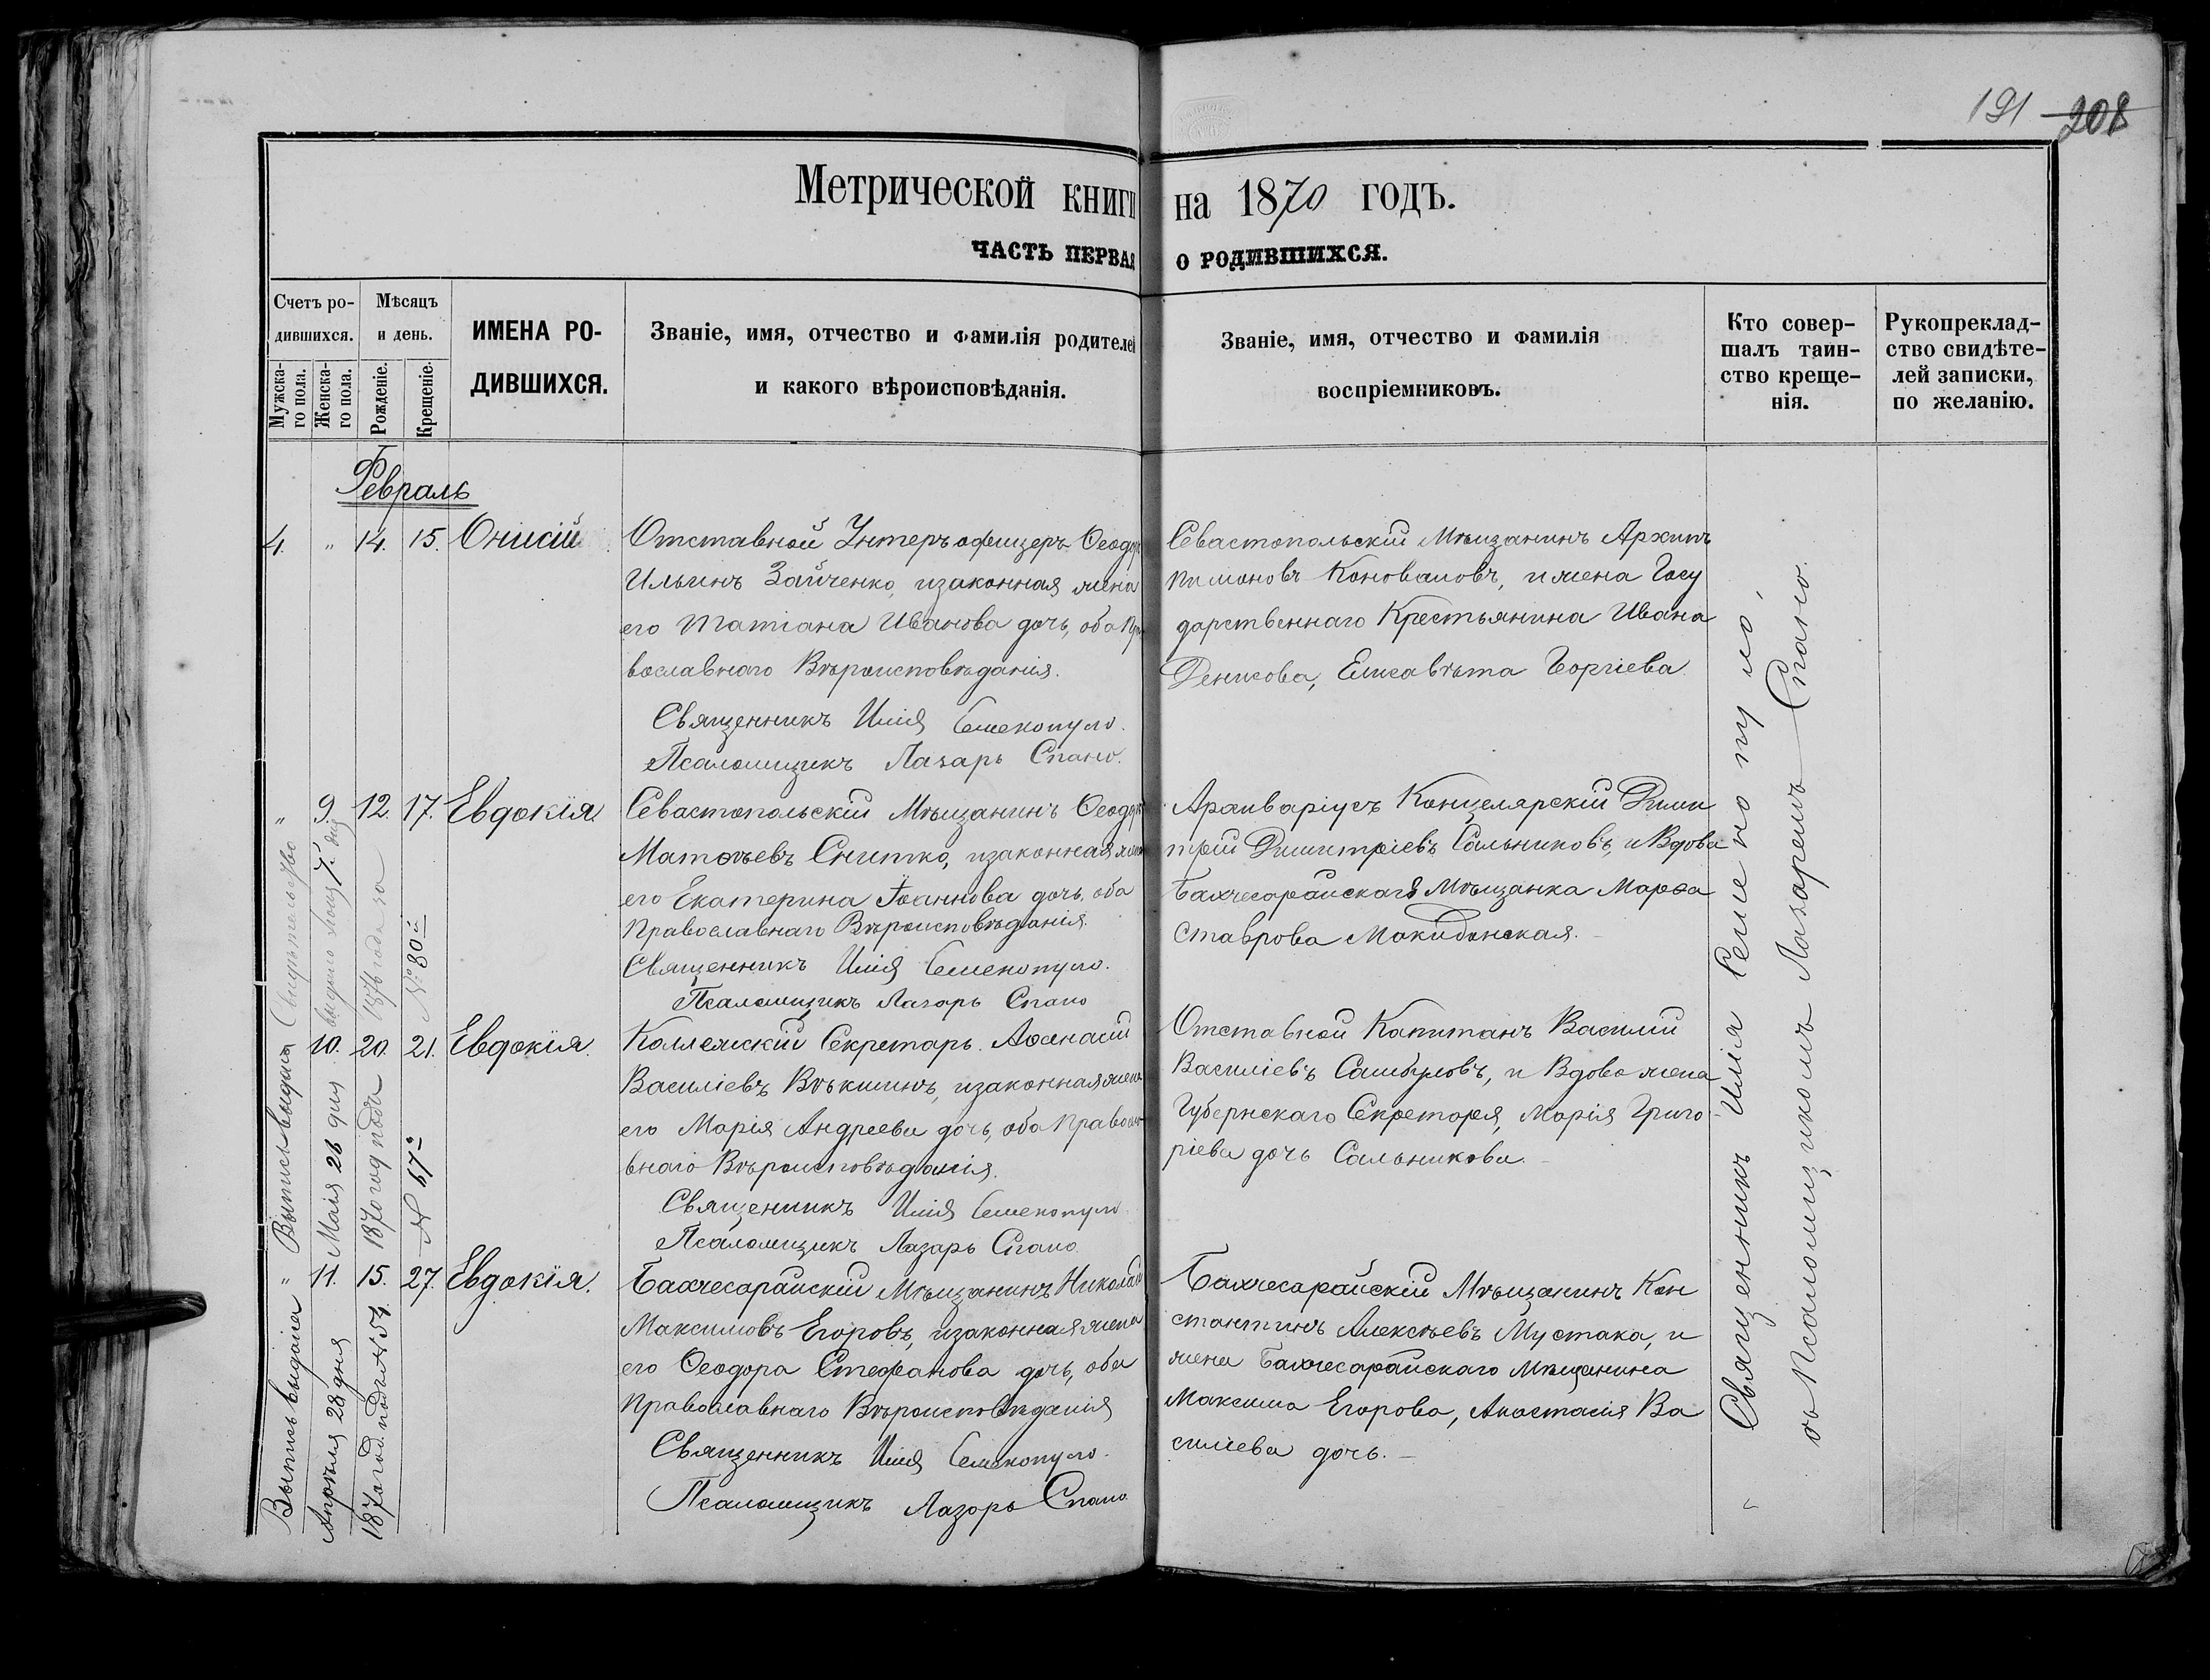 191 208
Метрической книги на 1870 годъ.
ЧАСТЬ ПЕРВАЯ О РОДИВШИХСЯ.
Счетъ родившихся.
Мужскаго пола.
Женскаго пола.
Мѣсяцъ и день.
Рожденіе.
Крещеніе.
ИМЕНА РОДИВШИХСЯ.
Званіе, имя, отчество и фамилія родителей
и какого вѣроисповѣданія.
Званіе, имя, отчество и фамилія
воспріемниковъ.
Кто совершалъ таинство крещенія.
Рукопрекладство свидѣтелей записки, по желанію.
Февраль
4. " 14. 15. Онисій
Отставной Унтеръ офицеръ Ѳеодоръ
Ильинъ Зайченко, изаконная жена
его Татіана Иванова дочь, оба Пра
вославнаго Вѣроисповѣданія.
Священникъ Илія Семенопуло.
Псаломщикъ Лазарь Спано.
Севастопольскій Мѣщанинъ Архипъ
Пимоновъ Коноваловъ, и жена Госу
дарственнаго Крестьянина Ивана
Денисова, Елисавѣта Георгіева
" 9. 12. 17. Евдокія.
Севастопольскій Мѣщанинъ Ѳеодоръ
Матѳѣевъ Снитко, изаконная жена
его Екатерина Іоаннова дочь, оба
Православнаго Вѣроисповѣданія.
Священникъ Илія Семенопуло.
Псаломщикъ Лазарь Спано
Архиваріусъ Канцелярскій Дими
трій Димитріевъ Сальниковъ, и Вдова
Бахчесарайскага Мѣщанка Марѳа
Ставрова Макидонская.
Свидѣтельство
выдано
1876 года за
№ 80й
10. 20. 21. Евдокія.
Коллежскій Секретарь Аѳанасій
Василіевъ Вѣкшинъ, изаконная жена
его Марія Андреева дочь, оба Правосла
внаго Вѣроисповѣданія.
Священникъ Илія Семенопуло
Псаломщикъ Лазарь Спано.
Отставной Капитанъ Василій
Василіевъ Самбуловъ, и Вдова жена
Губернскаго Секретаря, Марія Григо
ріева дочь Сальникова.
Выпись выдана
Маія 26 дня
1870 год подъ
№ 67
" 11. 15. 27. Евдокія.
Бахчесарайскій Мѣщанинъ Николай
Максимовъ Егоровъ, изаконная жена
его Ѳеодора Стефанова дочь, оба
Православнаго Вѣроисповѣданія
Священникъ Илія Семенопуло.
Псаломщикъ Лазарь Спано
Бахчесарайскій Мѣщанинъ Кон
стантинъ Алексѣевъ Мустака, и
жена Бахчесарайскаго Мѣщанина
Максима Егорова, Анастасія Ва
силіева дочь.
Выпись выдана
Апрѣля 28 дня
1870 год. подъ № 54.
Священникъ Илія Семенопуло,
съ Псаломщикомъ Лазаремъ Спано.